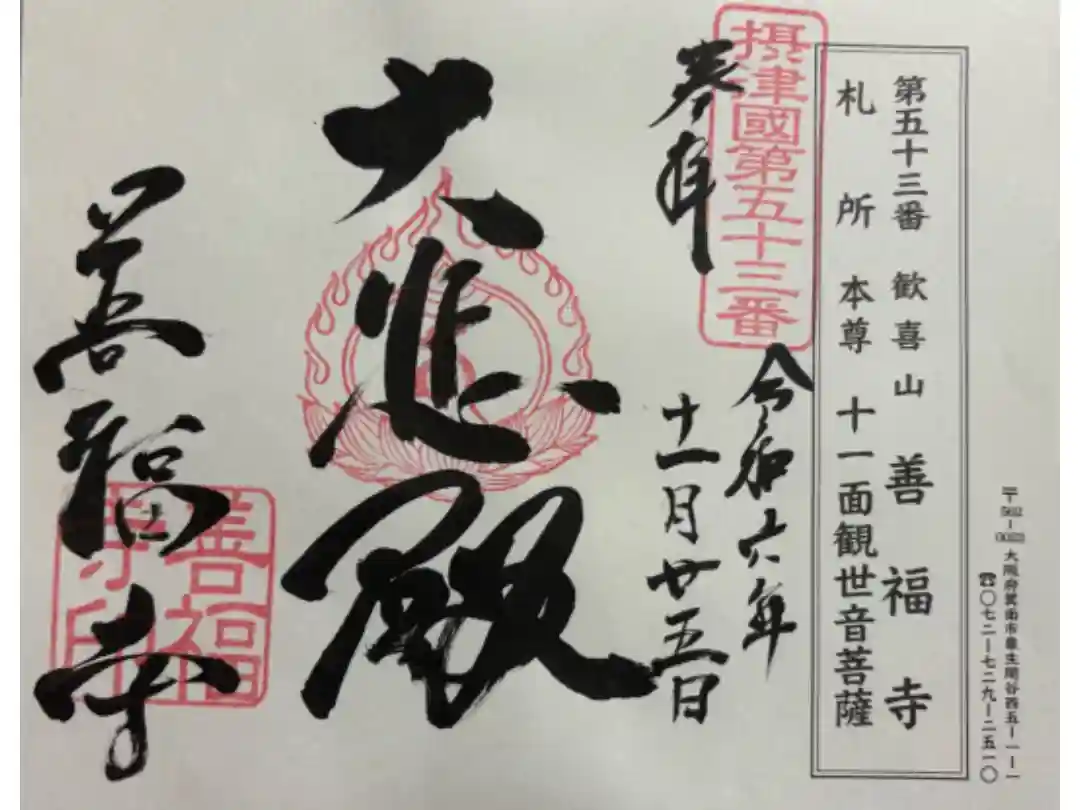 〒562-0023 大阪府箕面市粟生間谷西五ー一ー一
☎〇七二ー七二九ー二五一〇
第五十三番 歓喜山 善福寺
札所本尊 十一面観世音菩薩
摂津國第五十三番
奉拝
令和六年
十一月廿五日
大悲殿
善福寺
善福
寺印